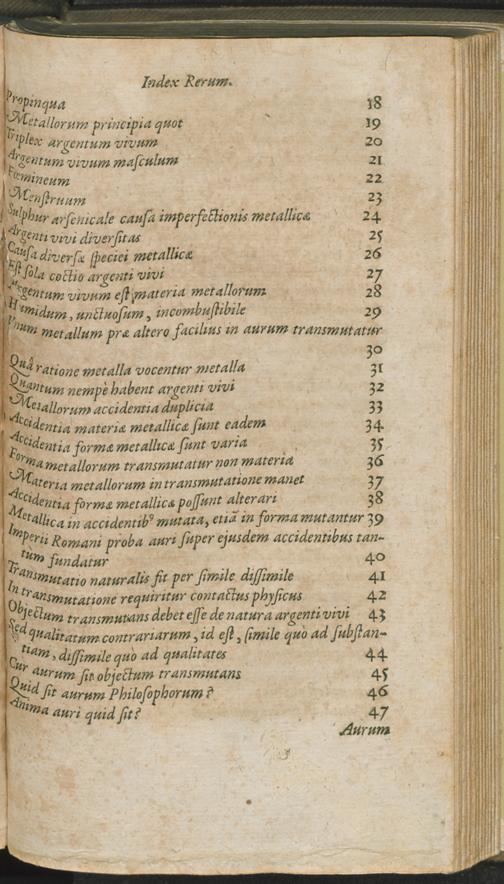 Index Rerum.
Propinqua 18
Metallorum principia quot 19
Triplex argentum vivum 20
Argentum vivum masculum 21
Fœmineum 22
Menstruum 23
Sulphur arsenicale causa imperfectionis metallicæ 24
Argenti vivi diversitas 25
Causa diversæ speciei metallicæ 26
Est sola coctio argenti vivi 27
Argentum vivum est materia metallorum 28
Humidum, unctuosum, incombustibile 29
Unum metallum præ altero facilius in aurum transmutatur
30
Quâ ratione metalla vocentur metalla 31
Quantum nempè habent argenti vivi 32
Metallorum accidentia duplicia 33
Accidentia materiæ metallicæ sunt eadem 34
Accidentia formæ metallicæ sunt varia 35
Forma metallorum transmutatur non materia 36
Materia metallorum in transmutatione manet 37
Accidentia formæ metallicæ possunt alterari 38
Metallica in accidentib⁹ mutata, etiā in forma mutantur 39
Imperii Romani proba auri super ejusdem accidentibus tan-
tum fundatur 40
Transmutatio naturalis fit per simile dissimile 41
In transmutatione requiritur contactus physicus 42
Objectum transmutans debet esse de natura argenti vivi 43
Sed qualitatum contrariarum, id est, simile quò ad substan-
tiam, dissimile quò ad qualitates 44
Cur aurum sit objectum transmutans 45
Quid sit aurum Philosophorum? 46
Anima auri quid sit? 47
Aurum